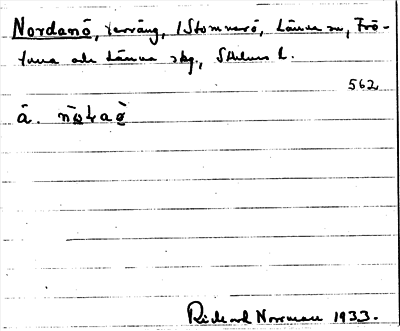 Nordanö, terräng, /Stommarö, Länna sn, Frö-
tuna och Länna skg., Sthlms l.
562
å. 
Richard Norrman 1933.